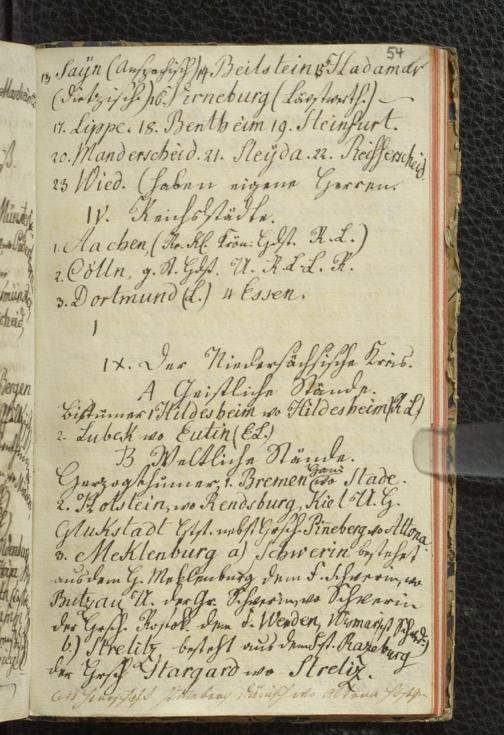 54
13 Saÿn (Anspachisch) 14 Beilstein 15 Hadamar
(Dietzisch.) 16. Virneburg (Löwstwerth.)
17. Lippe. 18. Bentheim 19. Steinfurt.
20. Manderscheid. 21. Sleÿda. 22. Reifferscheid
23 Wied. (haben eigene Herren.
IV. Reichsstädte.
1. Aachen, R. L.)
2. Cölln, g. U. R. L. L. R.
3. Dortmund (L.) 4 Essen.
IX. Der Niedersächsische Kreis.
A Geistliche Stände.
Bistümer 1 Hildesheim wo Hildesheim (R L)
2. Lubek wo Eutin (E L.)
B Weltliche Stände.
Herzogthumer, 1. Bremen wo Stade.
2. Holstein, wo Rendsburg, Kiel U. G.
Glukstadt nebst Pineberg wo Altona.
3. Meklenburg a) Schwerin bestehet
aus dem H. Meklenburg dem F. Schwerin, wo
Butzau U. der Gr. Schwerin, wo Schwerin
der Hrsch. Rostok dem F. Wenden, Wismar
b.) Strelitz. besteht aus dem Fst. Razeburg
der Hrsch Stargard wo Streliz.
wo Altona